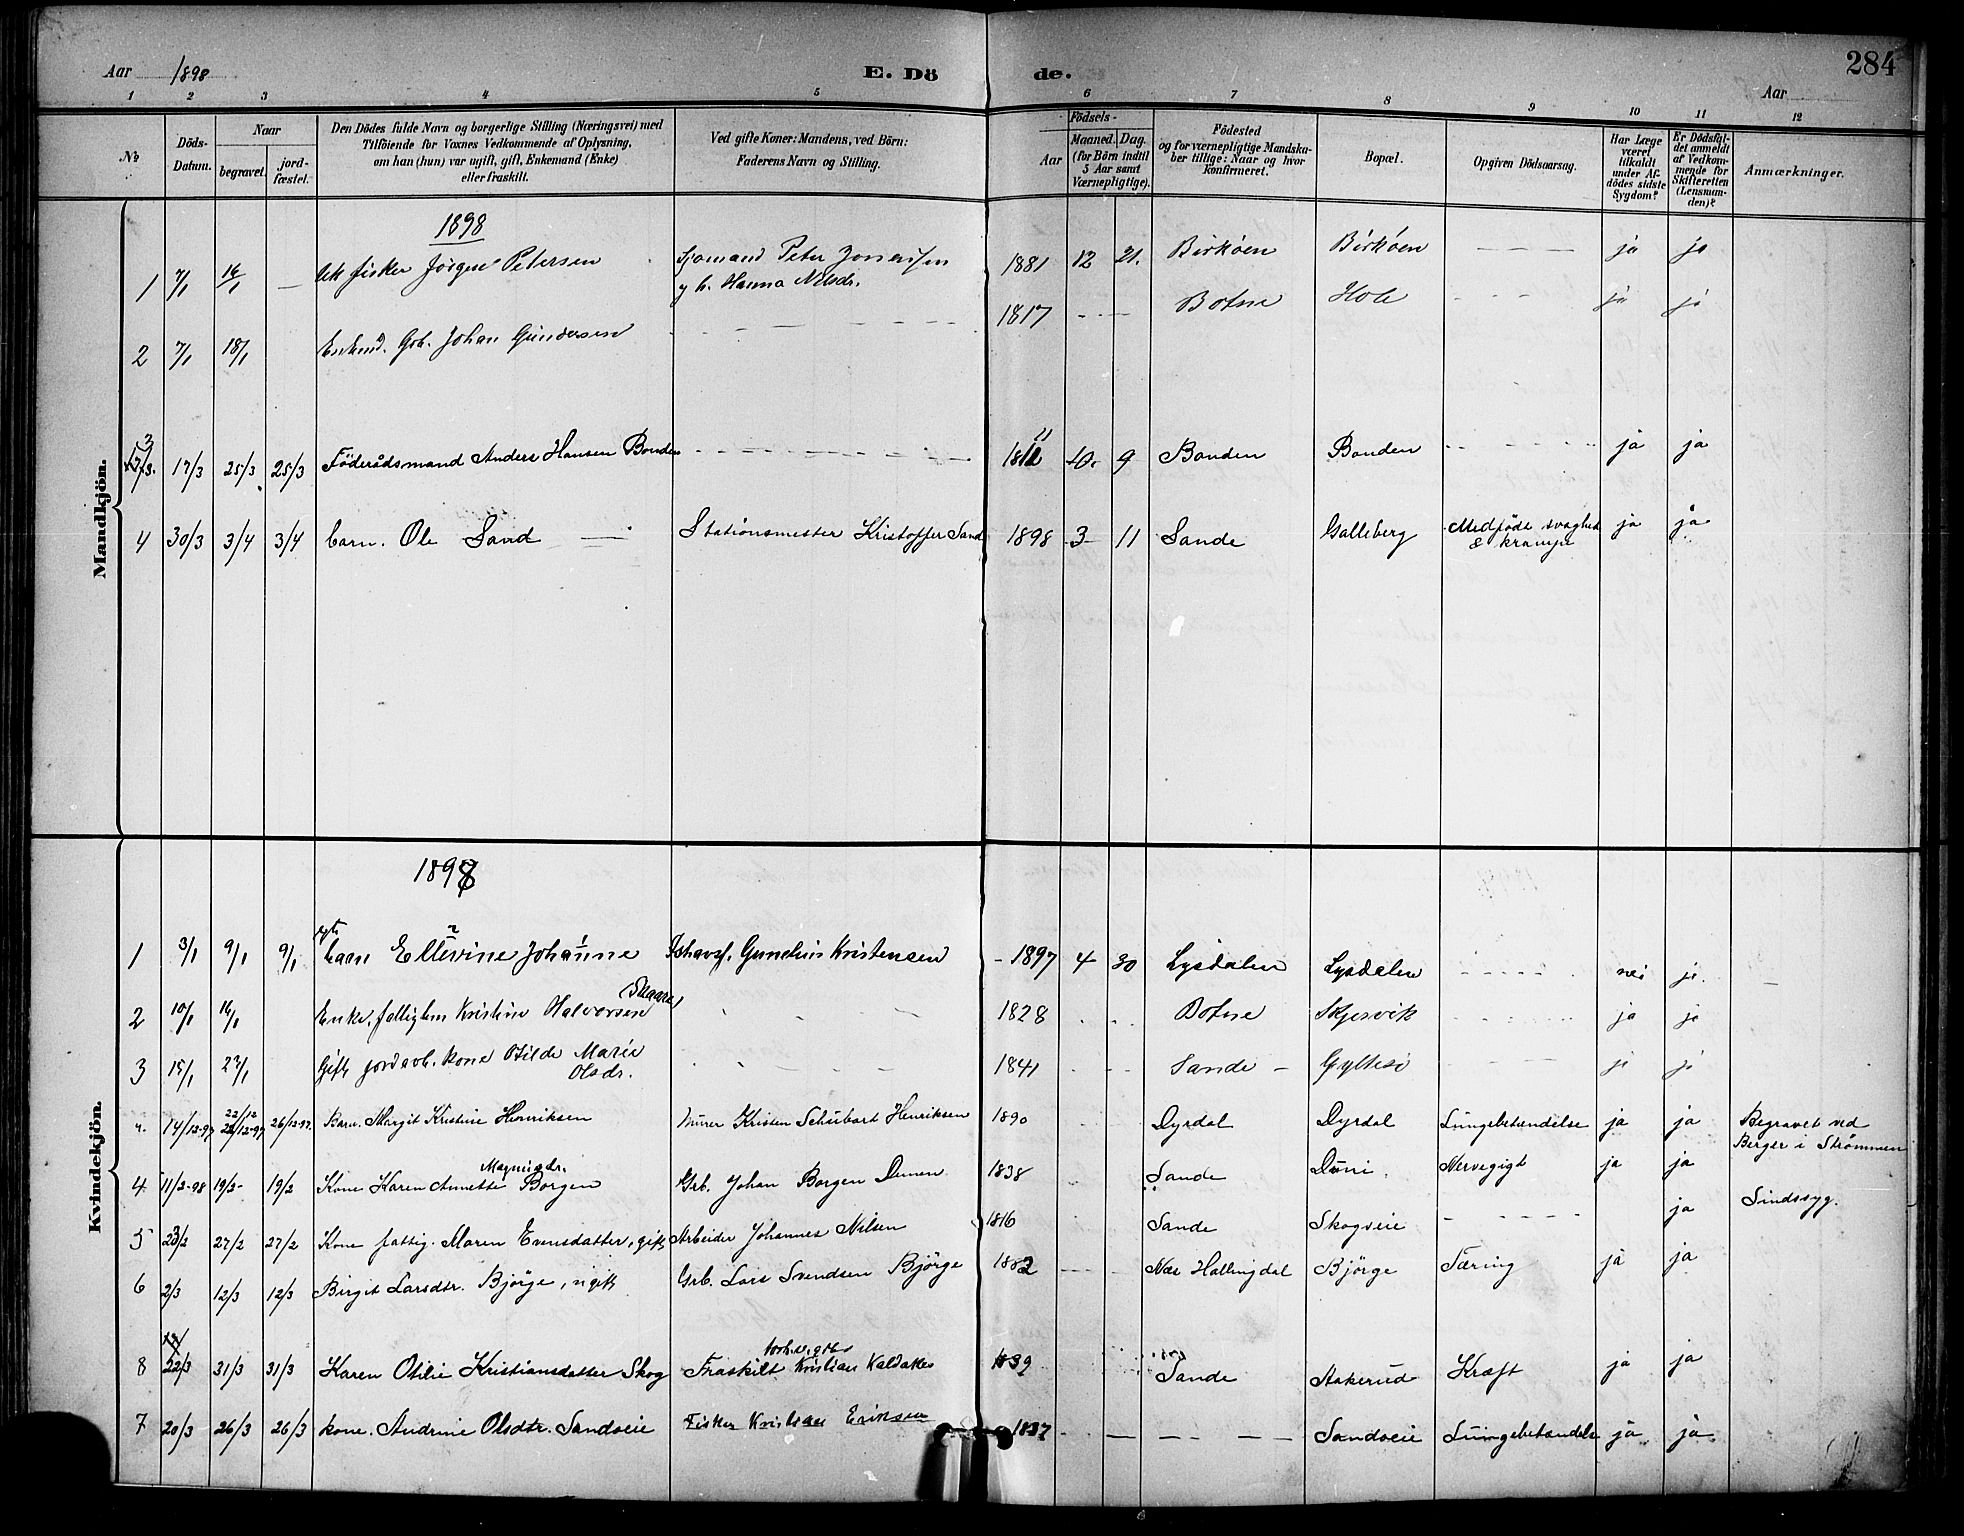 Aar 1898 E. Dö de. 284
Aar
1 2 3 4 5 6 7 8 9 10 11 12
№
Döds-Datum.
Naar
begravet.
jord-fæstet.
Den Dödes fulde Navn og borgerlige Stilling (Næringsvei) med
Tilföiende for Voxnes Vedkommende af Oplysning,
om han (hun) var ugift, gift, Enkemand (Enke)
eller fraskilt.
Ved gifte Koner: Mandens, ved Börn:
Faderens Navn og Stilling.
Födsels-
Aar
Maaned. Dag.
(for Börn indtil
5 Aar samt
Værnepligtige).
Födested
og for værnepligtige Mandska-
ber tillige: Naar og hvor
konfirmeret.
Bopæl.
Opgiven Dödsaarsag.
Har Læge
været
tilkaldt
under Af-
dödes sidste
Sygdom?
Er Dödsfal-
det anmeldt
af Vedkom-
mende for
Skifteretten
(Lensman-
den)?
Anmærkninger.
Mandkjön.
1898
1 7/1 14/1 — Uk fisker Jörgen Petersen Sjömand Peter 1881 12 21. Birköen Birköen — — — ja ja
g h. Hanna Nilsdr.
2 7/1 18/1 Enkmd. Grb. Johan Gundersen 1817 Botne Hole ja ja
3 17/3 25/3 25/3 Föderådsmand Anders Hansen Bonden 1811 10. 9 Bonden Bonden ja ja
4 30/3 3/4 3/4 barn. Ole Sand Stationsmester Kristoffer Sand 1898 3 11 Sande Galleberg Medfödt svaghed ja ja
& krampe
Kvindekjön.
1898
1 3/1 9/1 9/1 barn Ellevine Johanne Ishavsf. Gunelius Kristensen 1897 4 30 Lysdalen Lysdalen nei ja.
(Skaare)
2 10/1 14/1 Enke, fattiglem Kristine Halvorsen 1828 Botne Skjesvik ja ja
3 15/1 23/1 Gift jordarb. kone Otilde Marie 1841 Sande Gyltesö ja ja
Olsdr.
22/12
4. 14/12-97 22/12-97 26/12-97. Barn. Margit Kristine Henriksen Murer Kristen Schubart Henriksen 1890 Dyrdal Dyrdal Lungebetændelse ja ja Begravet ved
Berger i Strømmen
Magnusdr.
4 11/2-98 19/2- 19/2 Kone Karen Annette Borgen Grb. Johan Borgen 1838 Sande Duni. Nervegigt ja ja
5 23/2 27/2 27/2 Kone fattig. Maren Evensdatter, gift Arbeider Johannes Nilsen 1816 Sande Skogveie ja Sindssyg.
6 2/3 12/3 12/3 Birgit Larsdtr. Björge, ugift Grb. Lars Svendsen Björge 1882 Næs Hallingdal Björge Tæring ja ja
8 22/3 31/3 31/3 Karen Otilie Kristiansdatter Skog Fraskilt Kristian Kaldaker 1839 Sande Aakerud Kræft ja ja
7 20/3 26/3 26/3 kone. Andrine Olsdtr. Sandveie Fisker Kristian Eriksen 1837 Sandveie Lungebetændelse ja ja